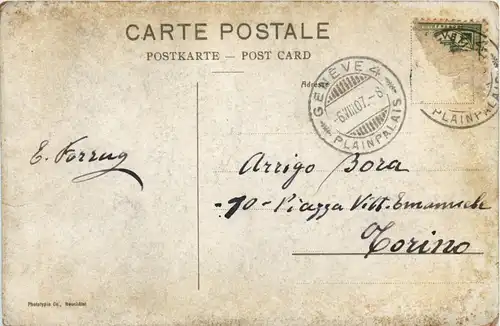 CARTE POSTALE
POSTKARTE — POST CARD
GENÈVE 4
-6.VIII.07.-6
PLAINPALAIS
PLAINPALAIS
E.
Arrigo Bora
-10- Piazza Vitt. Emanuele
Torino
Phototypie Co., Neuchâtel